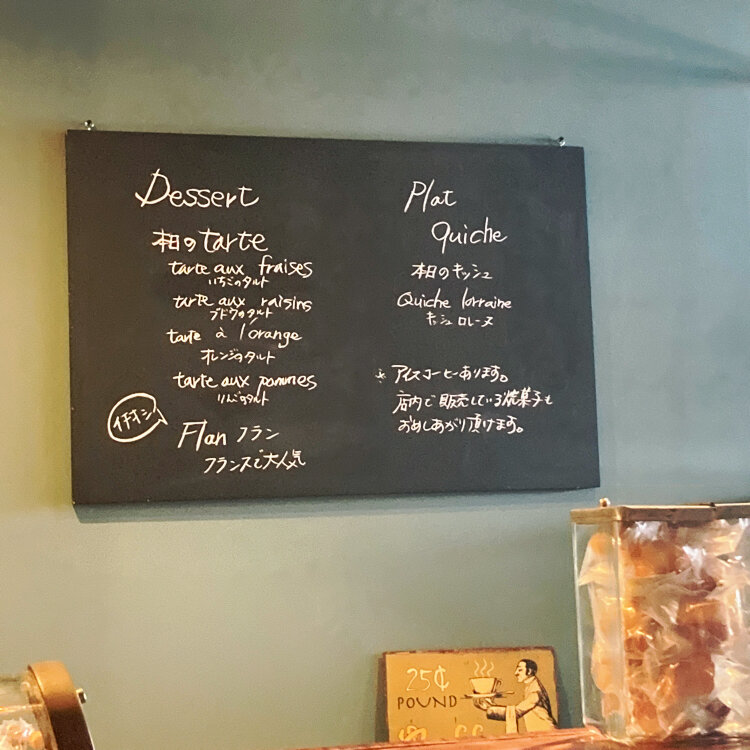 Dessert
本日のtarte
tarte aux fraises
いちごのタルト
tarte aux raisins
ブドウのタルト
tarte à l'orange
オレンジのタルト
tarte aux pommes
りんごのタルト
イチオシ!
Flan フラン
フランスで大人気
Plat
quiche
本日のキッシュ
Quiche lorraine
キッシュ ロレーヌ
※ アイスコーヒーあります。
店内で販売している焼菓子も
おめしあがり頂けます。
25¢
POUND